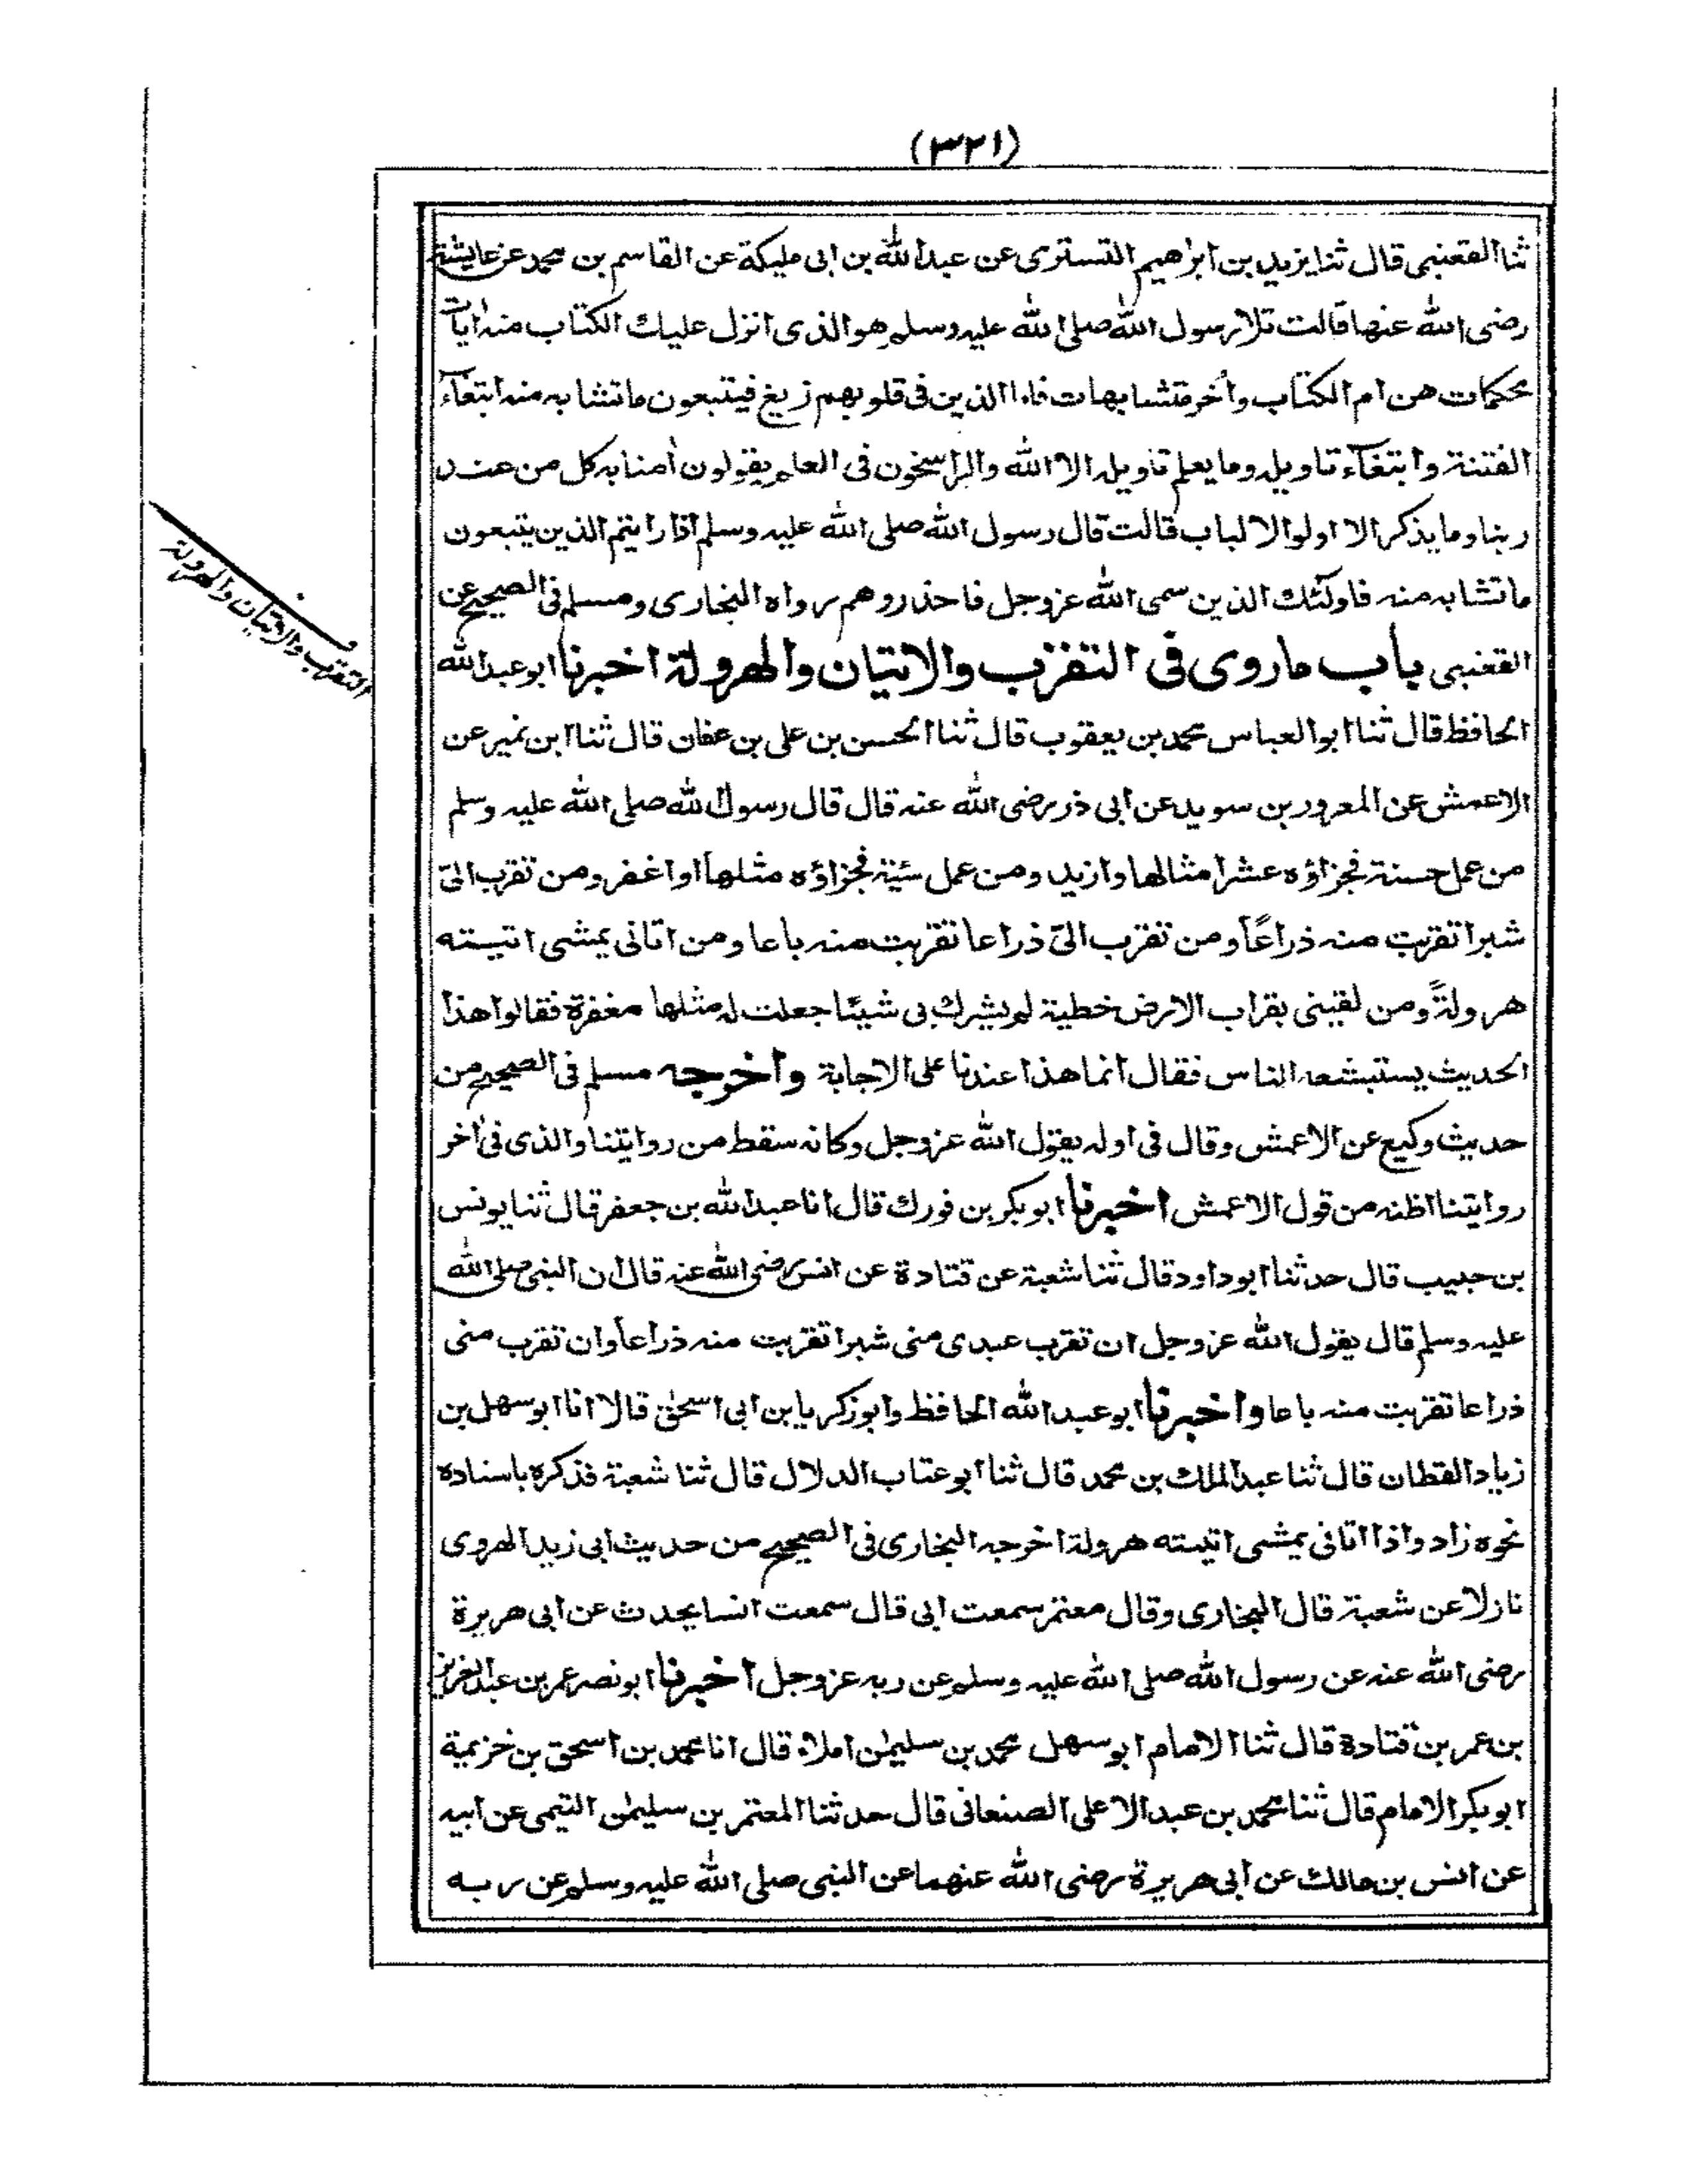 (٣٢١)
ثنا القعنبى قال ثنا يزيد بن ابرٰهيم التسترى عن عبد الله بن ابى مليكة عن القاسم بن محمد عن عايشة
رضى الله عنها قالت تلا رسول الله صلى الله عليه وسلم هو الذى انزل عليك الكتاب منه اٰيات
محكمات هن ام الكتاب واُخر متشابهات فاما الذين فى قلوبهم زيغ فيتبعون ما تشابه منه ابتغآء
الفتنة وابتغآء تاويله وما يعلم تاويله الا الله والراسخون فى العلم يقولون اٰمنا به كل من عند
ربنا وما يذكر الا اولوا الالباب قالت قال رسول الله صلى الله عليه وسلم اذا رايتم الذين يتبعون
ما تشابه منه فاولٓئك الذين سمى الله عزوجل فاحذروهم رواه البخارى ومسلم فى الصحيح عن
القعنبى باب ماروى فى التقرب والاتيان والهرولة اخبرنا ابو عبد الله
الحافظ قال ثنا ابو العباس محمد بن يعقوب قال ثنا الحسن بن على بن عفان قال ثنا ابن نمير عن
الاعمش عن المعرور بن سويد عن ابى ذر رضى الله عنه قال قال رسول الله صلى الله عليه وسلم
من عمل حسنة فجزاؤه عشر امثالها وازيد ومن عمل سئية فجزاؤه مثلها او اغفر ومن تقرب الىّ
شبرا تقربت منه ذراعًا ومن تقرب الىّ ذراعا تقربت منه باعا ومن اتانى يمشى اتيته
هرولةً ومن لقينى بقراب الارض خطية لم يشرك بى شيئا جعلت له مثلها مغفرة فقالوا هذا
الحديث يستبشعه الناس فقال انما هذا عندنا على الاجابة واخرجه مسلم فى الصحيح من
حديث وكيع عن الاعمش وقال فى اوله يقول الله عزوجل وكانه سقط من روايتنا والذى فى اٰخر
روايتنا اظنه من قول الاعمش اخبرنا ابو بكر بن فورك قال انا عبد الله بن جعفر قال ثنا يونس
بن حبيب قال حدثنا ابوداود قال ثنا شعبة عن قتادة عن انس رضى الله عنه قال ان النبى صلى الله
عليه وسلم قال يقول الله عزوجل ان تقرب عبدى منى شبرا تقربت منه ذراعا وان تقرب منى
ذراعا تقربت منه باعا واخبرنا ابو عبد الله الحافظ وابو زكريا بن ابى اسحٰق قالا انا ابو سهل بن
زياد القطان قال ثنا عبد الملك بن محمد قال ثنا ابو عتاب الدلال قال ثنا شعبة فذكره باسناده
نحوه زاد واذا اتانى يمشى اتيته هرولة اخرجه البخارى فى الصحيح من حديث ابى زيد الهروى
نازلا عن شعبة قال البخارى وقال معتمر سمعت ابى قال سمعت انسا يحدث عن ابى هريرة
رضى الله عنه عن رسول الله صلى الله عليه وسلم عن ربه عزوجل اخبرنا ابو نصر عمر بن عبد العزيز
بن عمر بن قتادة قال ثنا الامام ابو سهل محمد بن سليمٰن املاء قال انا محمد بن اسحق بن خزيمة
ابو بكر الامام قال ثنا محمد بن عبد الاعلى الصنعانى قال حدثنا المعتمر بن سليمٰن التيمى عن ابيه
عن انس بن مالك عن ابى هريرة رضى الله عنهما عن النبى صلى الله عليه وسلم عن ربه
التقرب والاتيان والهرولة